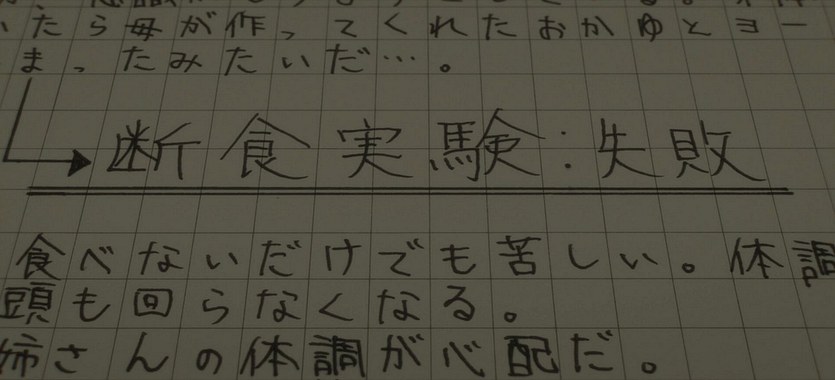 たら母が作ってくれたおかゆとヨー
ま、たみたいだ…。
断食実験:失敗
食べないだけでも苦しい。体調
頭も回らなくなる。
姉さんの体調が心配だ。